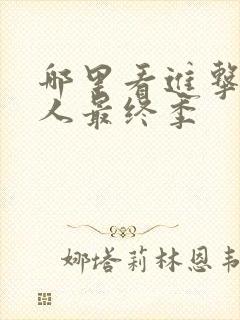 哪里看进击
人最终季
娜塔莉林恩韦